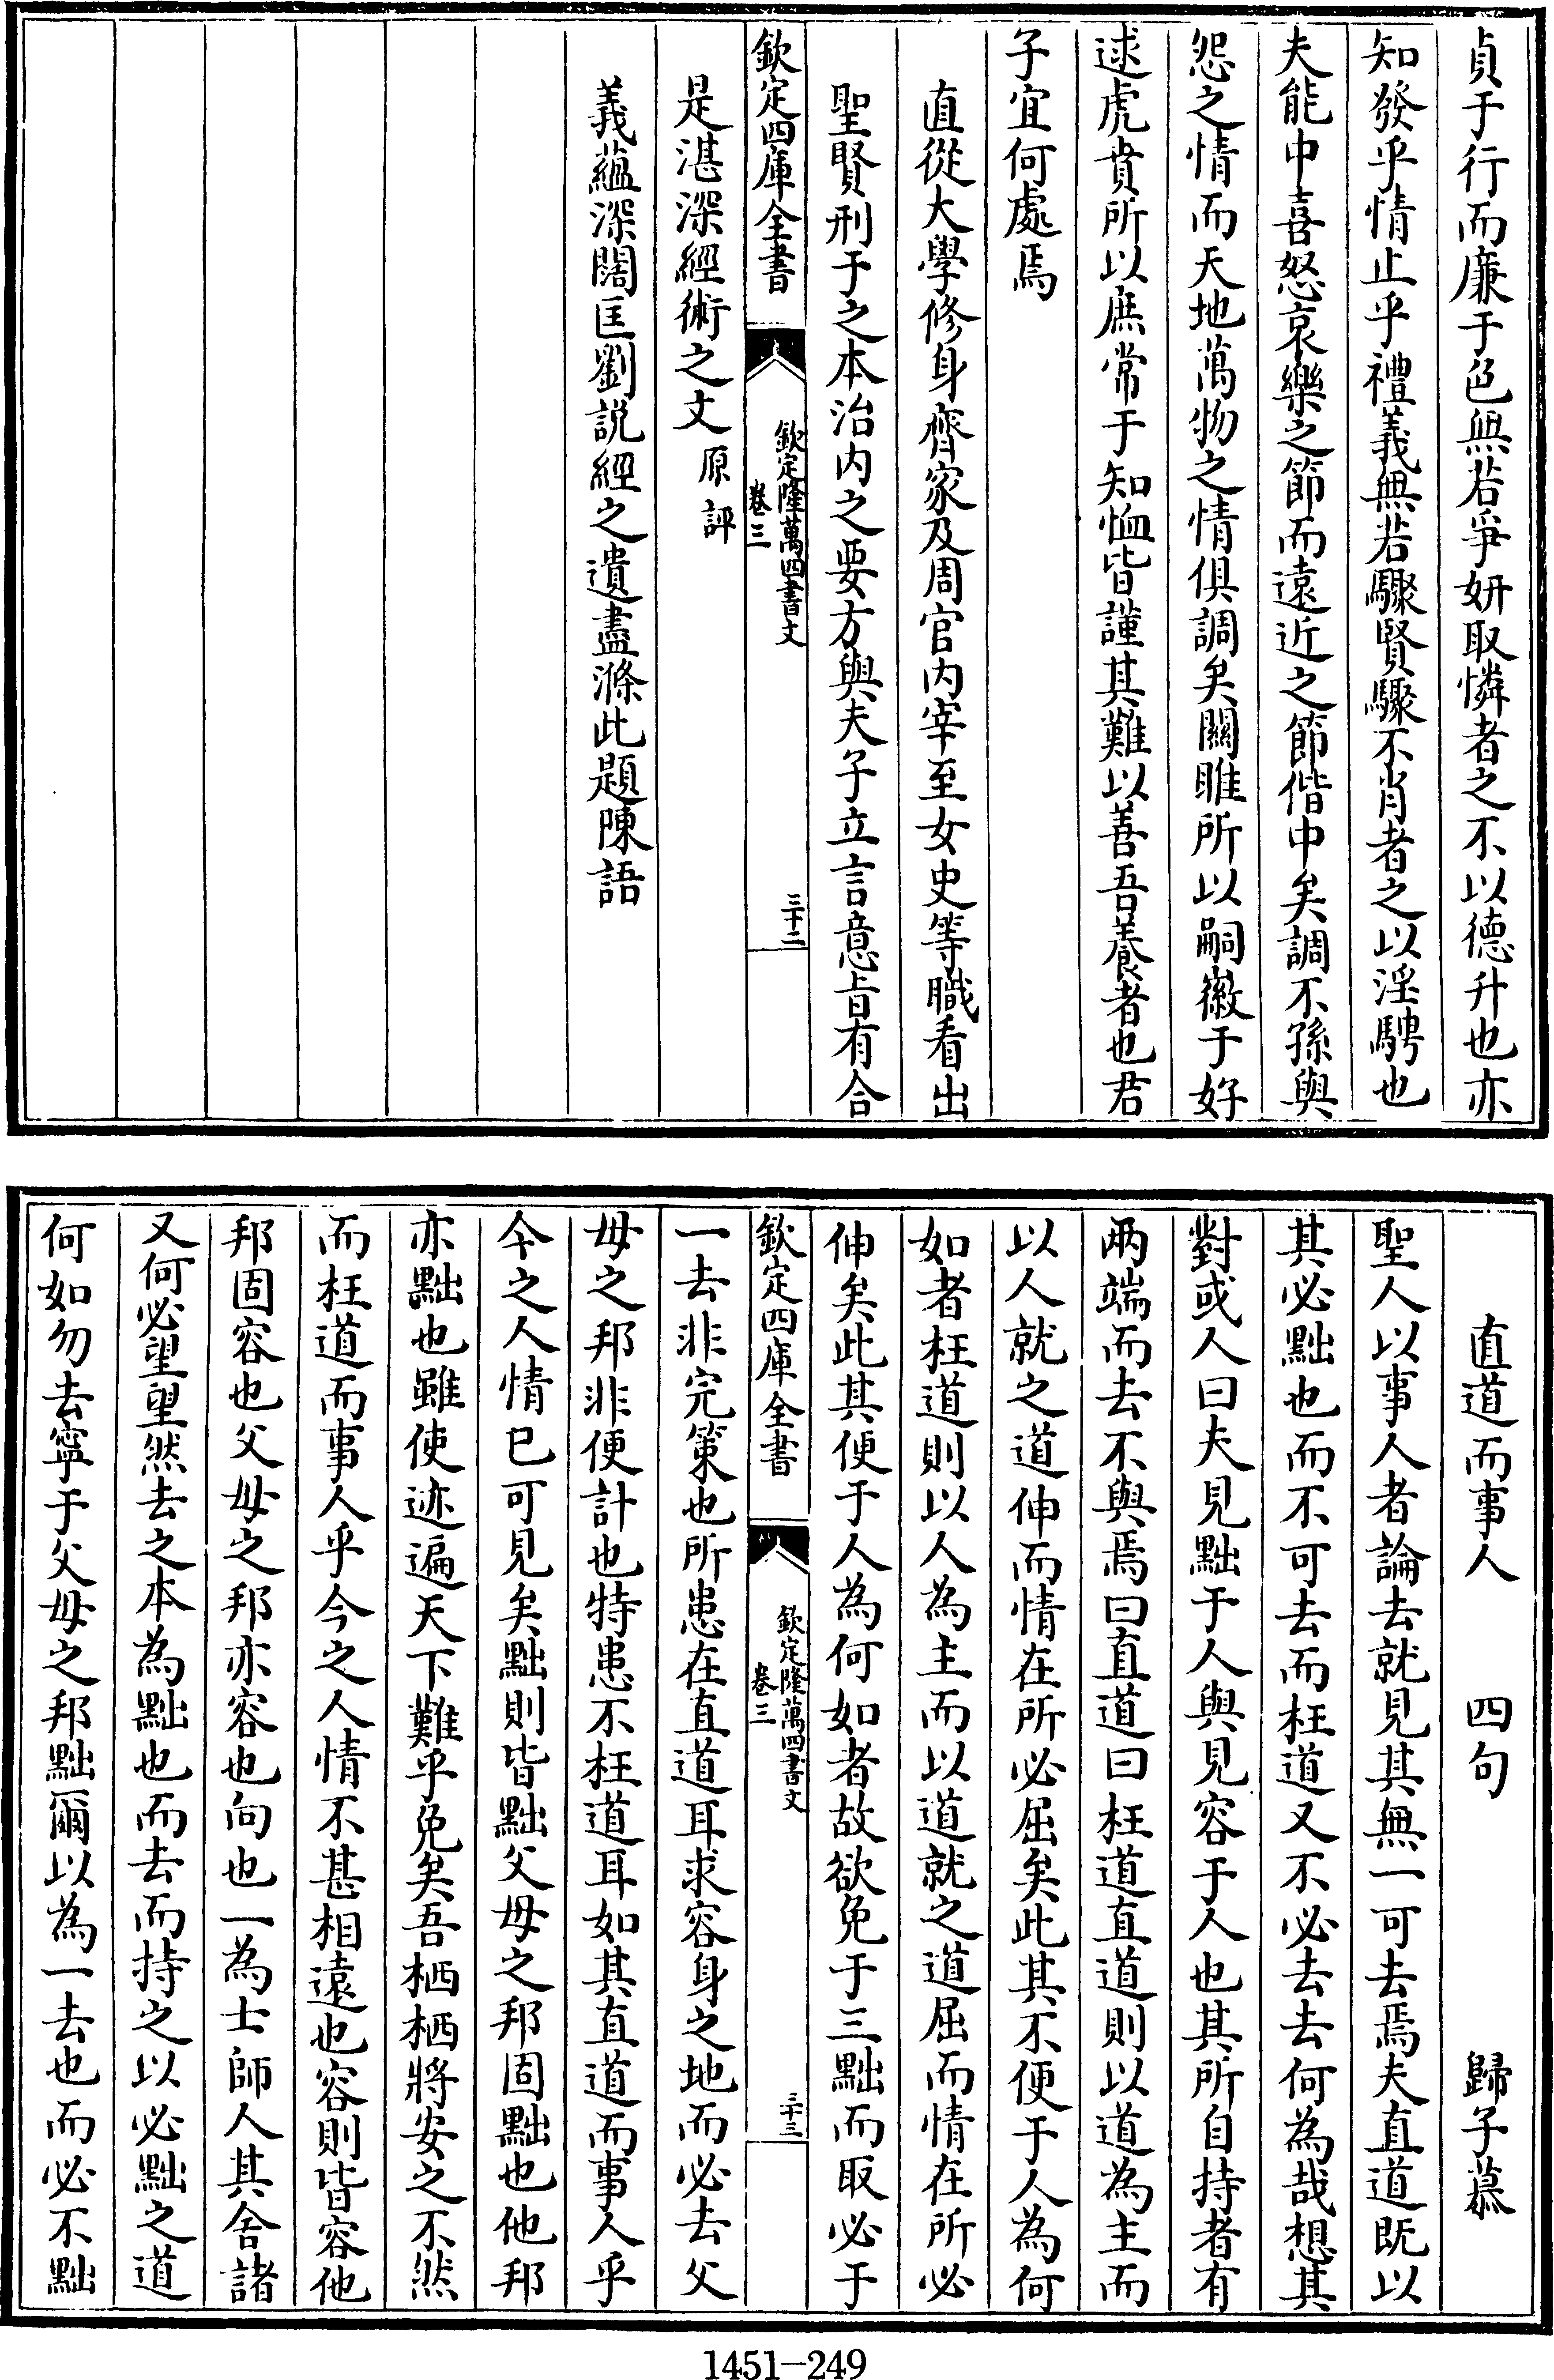 貞于行而廉于色無若爭妍取憐者之不以德升也亦
知發乎情止乎禮義無若驟賢驟不肖者之以淫騁也
夫能中喜怒哀樂之節而遠近之節偕中矣調不孫與
怨之情而天地萬物之情俱調矣關雎所以嗣徽于好
逑虎賁所以庶常于知恤皆謹其難以善吾養者也君
子宜何處焉
直從大學修身齊家及周官内宰至女史等職看出
聖賢刑于之本治内之要方與夫子立言意旨有合
欽定四庫全書
欽定隆萬四書文
卷三
三十二
是湛深經術之文原評
義蘊深闊匡劉説經之遺盡滌此題陳語
直道而事人 四句 歸子慕
聖人以事人者論去就見其無一可去焉夫直道既以
其必黜也而不可去而枉道又不必去去何為哉想其
對或人曰夫見黜于人與見容于人也其所自持者有
兩端而去不與焉曰直道曰枉道直道則以道為主而
以人就之道伸而情在所必屈矣此其不便于人為何
如者枉道則以人為主而以道就之道屈而情在所必
伸矣此其便于人為何如者故欲免于三黜而取必于
欽定四庫全書
欽定隆萬四書文
卷三
三十三
一去非完策也所患在直道耳求容身之地而必去父
母之邦非便計也特患不枉道耳如其直道而事人乎
今之人情已可見矣黜則皆黜父母之邦固黜也他邦
亦黜也雖使迹遍天下難乎免矣吾栖栖將安之不然
而枉道而事人乎今之人情不甚相遠也容則皆容他
邦固容也父母之邦亦容也向也一為士師人其舍諸
又何必望望然去之本為黜也而去而持之以必黜之道
何如勿去寧于父母之邦黜爾以為一去也而必不黜
1451-249